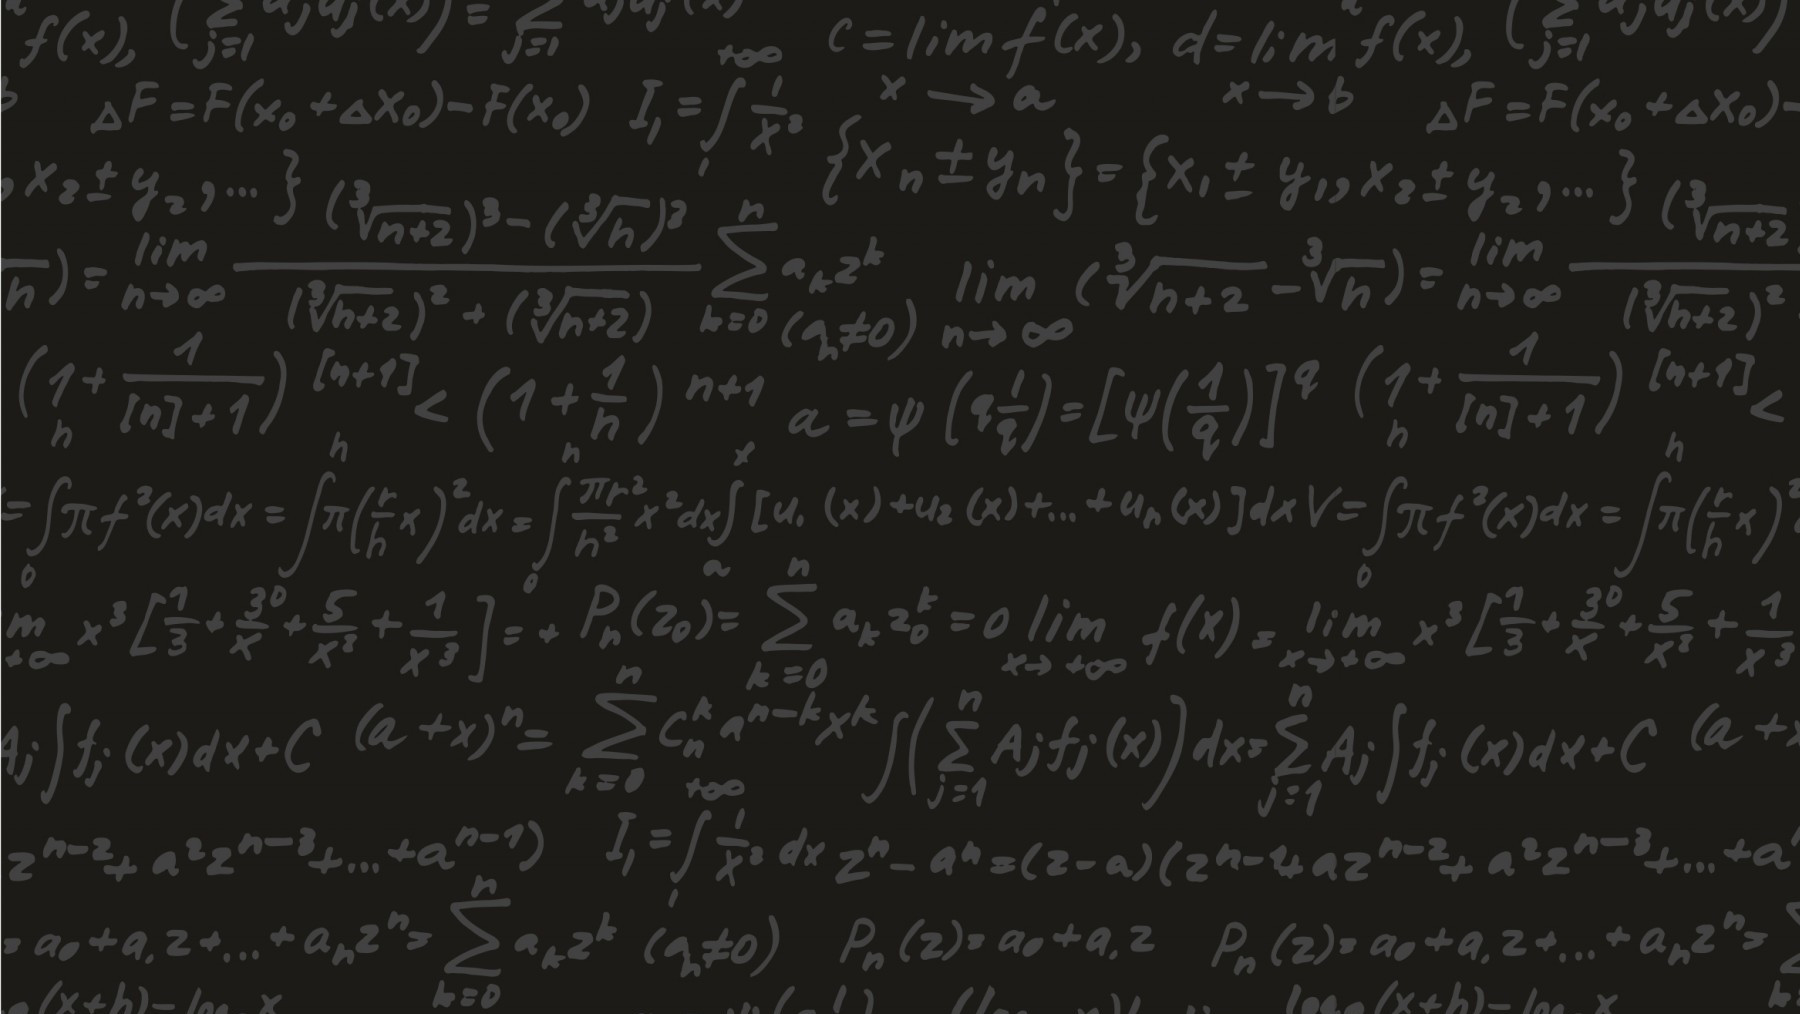 f(x), (∑_{j=1} a_j u_j(x)) = ∑_{j=1} a_j u_j(x) c = lim_{x→a} f(x), d = lim_{x→b} f(x), (∑_{j=1} a_j u_j(x))
b ΔF = F(x₀ + Δx₀) − F(x₀) I₁ = ∫_1^{+∞} 1/x³ ΔF = F(x₀ + Δx₀) −
x₂ ± y₂, ... } {x_n ± y_n} = {x₁ ± y₁, x₂ ± y₂, ... }
n) = lim_{n→∞} ((∛(n+2))³ − (∛n)³) / ((∛(n+2))² + (∛(n+2)) ∑_{k=0}^{n} a_k z^k (a_n ≠ 0) lim_{n→∞} (∛(n+2) − ∛n) = lim_{n→∞} (∛(n+2) (∛(n+2))²
(1 + 1/([n]+1))^{[n+1]} < (1 + 1/n)^{n+1} a = ψ(q 1/q) = [ψ(1/q)]^q (1 + 1/([n]+1))^{[n+1]} <
= ∫_0^h π f²(x)dx = ∫^h π(r/h x)² dx = ∫_0^h πr²/h² x² dx ∫_a^x [u₁(x) + u₂(x) + ... + u_n(x)]dx V = ∫_0^h π f²(x)dx = ∫^h π(r/h x)²
m +∞ x³ [1/3 + 30/x + 5/x² + 1/x³] = + P_n(z₀) = ∑_{k=0}^{n} a_k z₀^k = 0 lim_{x→+∞} f(x) = lim_{x→+∞} x³ [1/3 + 30/x + 5/x² + 1/x³
A_j ∫f_j(x)dx + C (a + x)^n = ∑_{k=0}^{n} C_n^k a^{n−k} x^k ∫(∑_{j=1}^{n} A_j f_j(x))dx = ∑_{j=1}^{n} A_j ∫f_j(x)dx + C (a + x
z^{n−2} + a²z^{n−3} + ... + a^{n−1}) I₁ = ∫_1^{+∞} 1/x³ dx z^n − a^n = (z − a)(z^{n−1} + az^{n−2} + a²z^{n−3} + ... + a
= a₀ + a₁z + ... + a_n z^n = ∑_{k=0}^{n} a_k z^k (a_n ≠ 0) P_n(z) = a₀ + a₁z P_n(z) = a₀ + a₁z + ... + a_n z^n =
(x+h) − log x (x+h) − log x